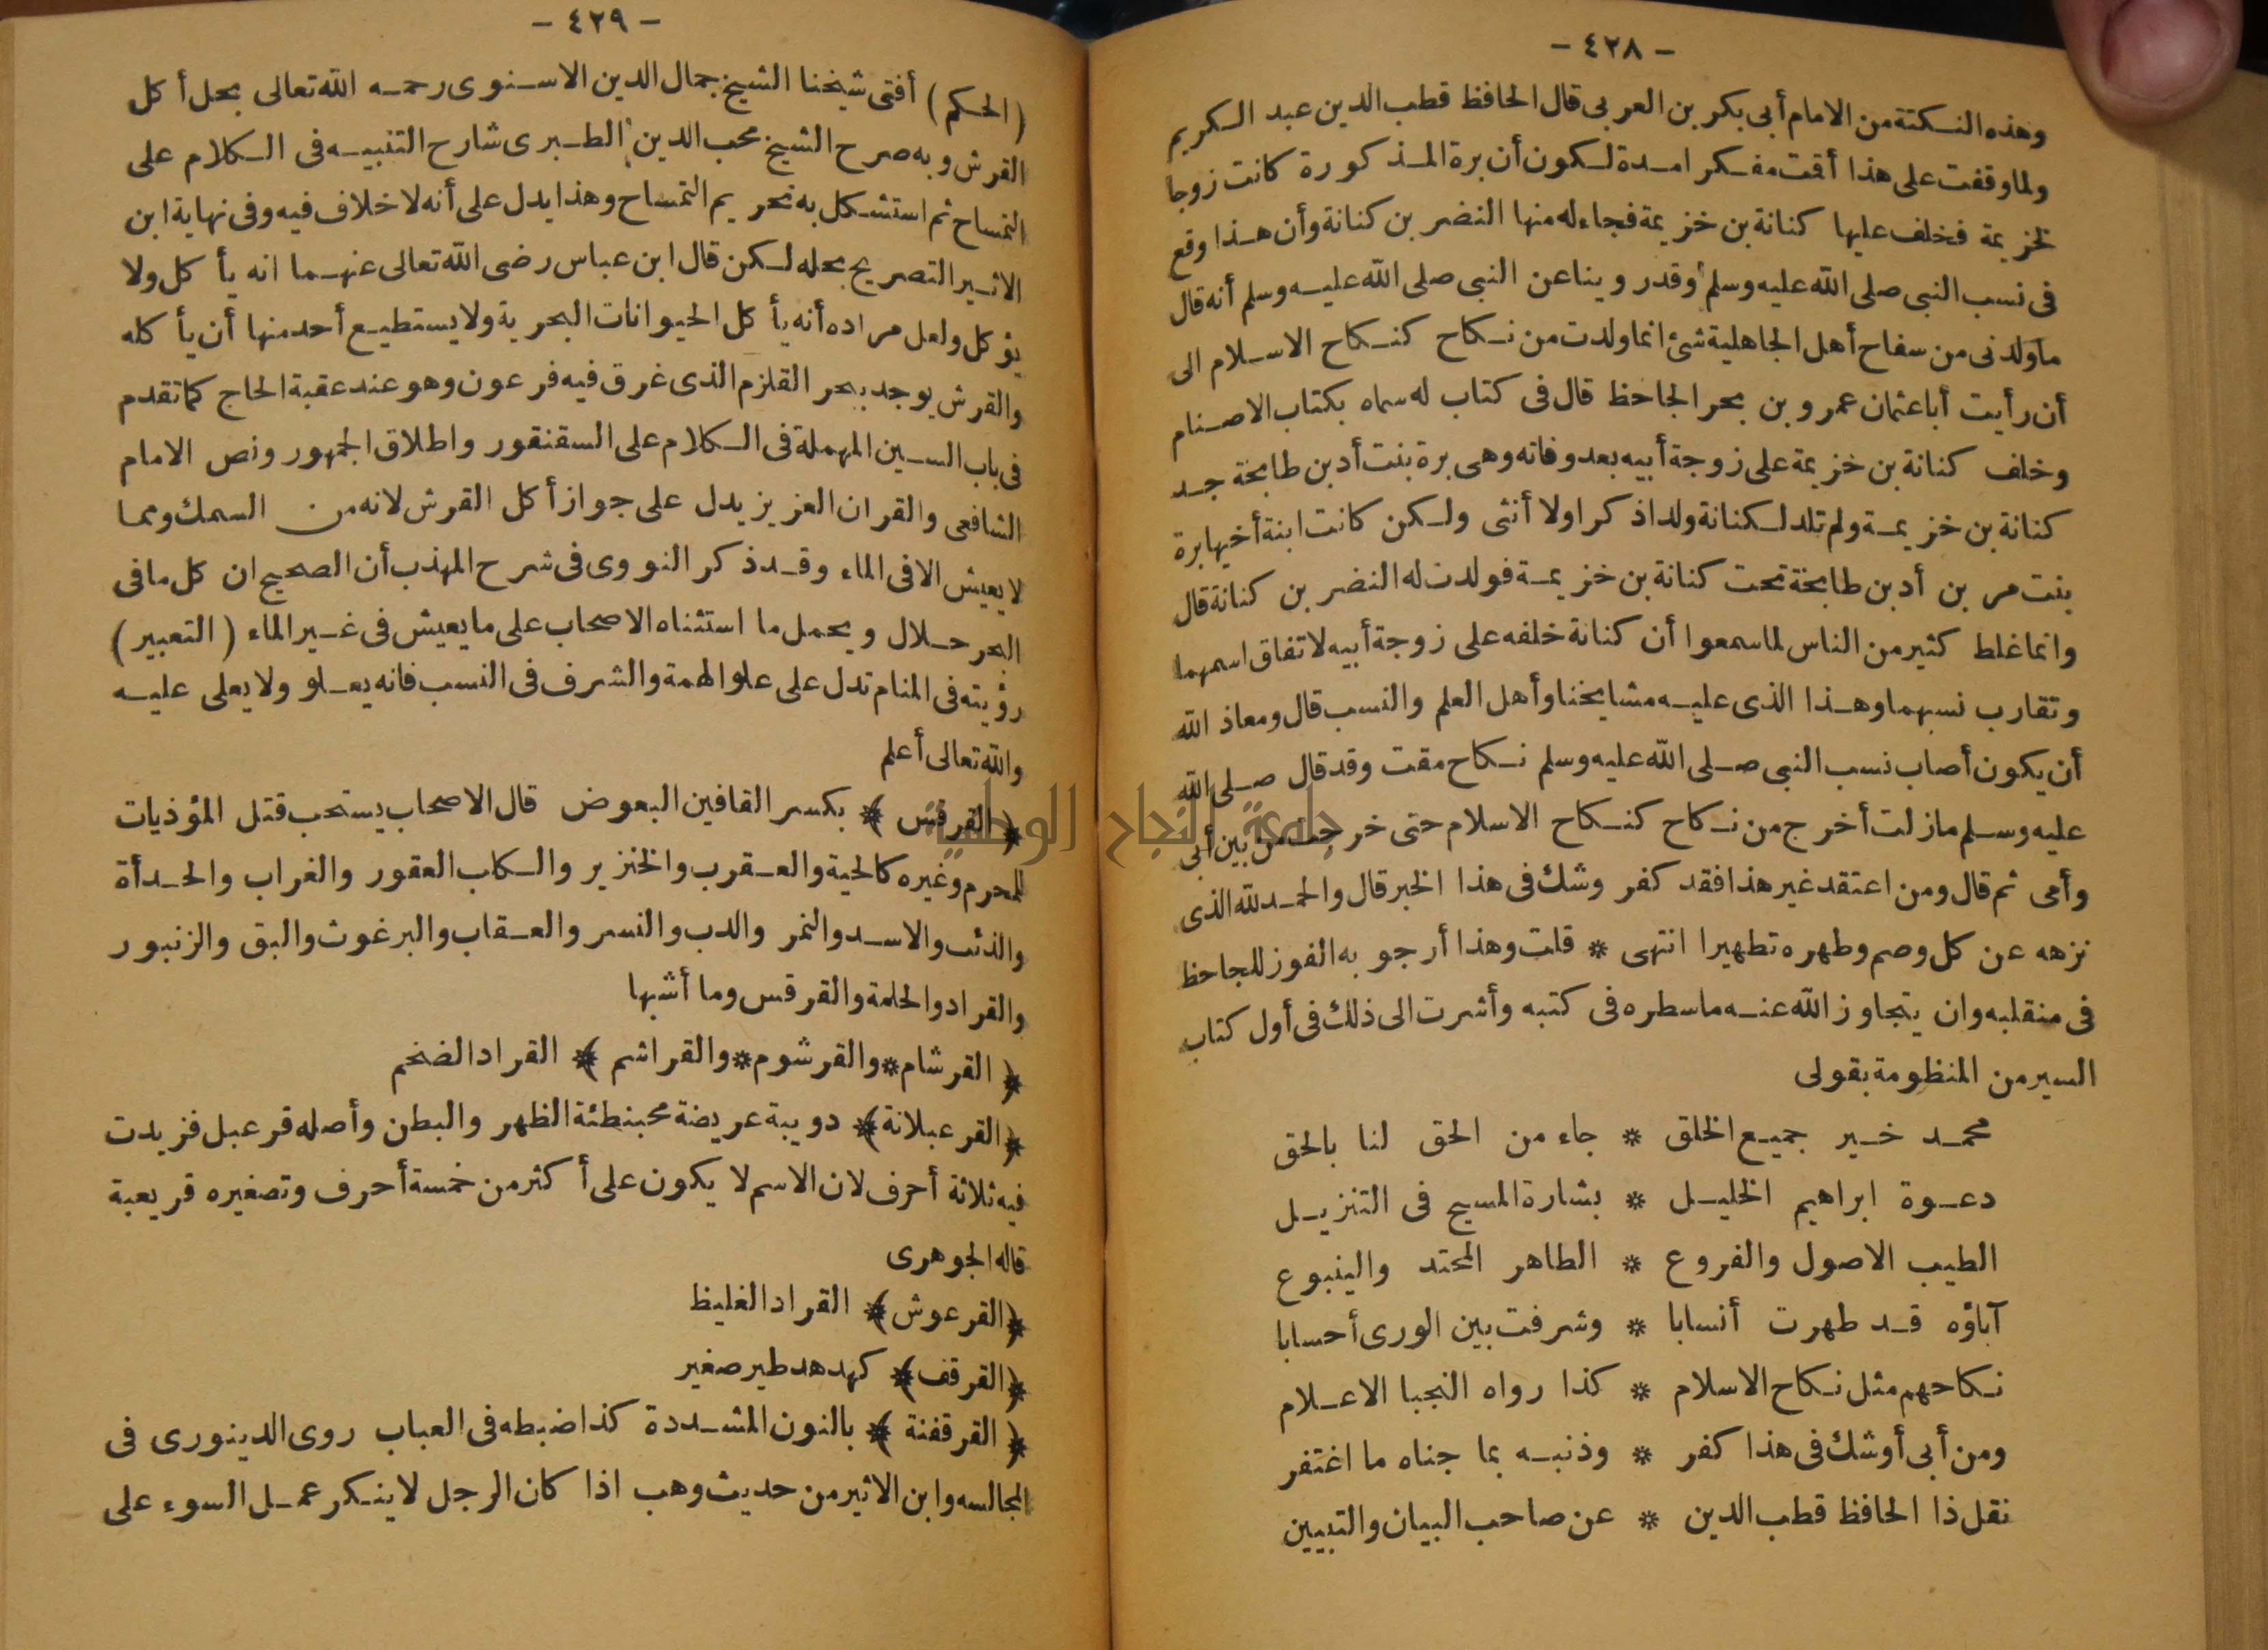 - ٤٢٨ -
وهذه النكتة من الامام أبى بكر بن العربى قال الحافظ قطب الدين عبد الكريم
ولما وقفت على هذا أقت مفكرا مدة لكون أن برة المذكورة كانت زوجا
لخزيمة فخلف عليها كنانة بن خزيمة فجاء له منها النضر بن كنانة وأن هذا وقع
فى نسب النبى صلى الله عليه وسلم وقد روينا عن النبى صلى الله عليه وسلم أنه قال
ما ولدنى من سفاح أهل الجاهلية شئ انما ولدت من نكاح كنكاح الاسلام الى
أن رأيت أبا عثمان عمرو بن بحر الجاحظ قال فى كتاب له سماه بكتاب الاصنام
وخلف كنانة بن خزيمة على زوجة أبيه بعد وفاته وهى برة بنت أد بن طابخة جد
كنانة بن خزيمة ولم تلد لكنانة ولدا ذكرا ولا أنثى ولكن كانت ابنة أخيها برة
بنت مر بن أد بن طابخة تحت كنانة بن خزيمة فولدت له النضر بن كنانة قال
وانما غلط كثير من الناس لما سمعوا أن كنانة خلفه على زوجة أبيه لاتفاق اسمهما
وتقارب نسبهما وهذا الذى عليه مشايخنا وأهل العلم والنسب قال ومعاذ الله
أن يكون أصاب نسب النبى صلى الله عليه وسلم نكاح مقت وقد قال صلى الله
عليه وسلم ما زلت أخرج من نكاح كنكاح الاسلام حتى خرجت من بين أبى
وأمى ثم قال ومن اعتقد غير هذا فقد كفر وشك فى هذا الخبر قال والحمد لله الذى
نزهه عن كل وصم وطهره تطهيرا انتهى * قلت وهذا أرجو به الفوز للجاحظ
فى منقلبه وان يتجاوز الله عنه ما سطره فى كتبه وأشرت الى ذلك فى أول كتاب
السير من المنظومة بقولى
محمد خير جميع الخلق * جاء من الحق لنا بالحق
دعوة ابراهيم الخليل * بشارة المسيح فى التنزيل
الطيب الاصول والفروع * الطاهر المحتد والينبوع
آباؤه قد طهرت أنسابا * وشرفت بين الورى أحسابا
نكاحهم مثل نكاح الاسلام * كذا رواه النجبا الاعلام
ومن أبى أوشك فى هذا كفر * وذنبه بما جناه ما اغتفر
نقل ذا الحافظ قطب الدين * عن صاحب البيان والتبيين
- ٤٢٩ -
(الحكم) أفتى شيخنا الشيخ جمال الدين الاسنوى رحمه الله تعالى بحل أكل
القرش وبه صرح الشيخ محب الدين الطبرى شارح التنبيه فى الكلام على
التمساح ثم استشكل به تحريم التمساح وهذا يدل على أنه لا خلاف فيه وفى نهاية ابن
الاثير التصريح بحله لكن قال ابن عباس رضى الله تعالى عنهما انه يأكل ولا
يؤكل ولعل مراده أنه يأكل الحيوانات البحرية ولا يستطيع أحد منها أن يأكله
والقرش يوجد ببحر القلزم الذى غرق فيه فرعون وهو عند عقبة الحاج كما تقدم
فى باب السين المهملة فى الكلام على السقنقور واطلاق الجمهور ونص الامام
الشافعى والقران العزيز يدل على جواز أكل القرش لانه من السمك ومما
لا يعيش الا فى الماء وقد ذكر النووى فى شرح المهذب أن الصحيح ان كل ما فى
البحر حلال ويحمل ما استثناه الاصحاب على ما يعيش فى غير الماء (التعبير)
رؤيته فى المنام تدل على علو الهمة والشرف فى النسب فانه يعلو ولا يعلى عليه
والله تعالى أعلم
﴿القرقس﴾ بكسر القافين البعوض قال الاصحاب يستحب قتل المؤذيات
للمحرم وغيره كالحية والعقرب والخنزير والكلب العقور والغراب والحدأة
والذئب والاسد والنمر والدب والنسر والعقاب والبرغوث والبق والزنبور
والقراد والحلمة والقرقس وما أشبها
﴿القرشام*والقرشوم*والقراشم﴾ القراد الضخم
﴿القرعبلانة﴾ دويبة عريضة محبنطئة الظهر والبطن وأصله قرعبل فزيدت
فيه ثلاثة أحرف لان الاسم لا يكون على أكثر من خمسة أحرف وتصغيره قريعبة
قاله الجوهرى
﴿القرعوش﴾ القراد الغليظ
﴿القرقف﴾ كهدهد طير صغير
﴿القرقفنة﴾ بالنون المشددة كذا ضبطه فى العباب روى الدينورى فى
المجالسه وابن الاثير من حديث وهب اذا كان الرجل لا ينكر عمل السوء على
جامعة النجاح الوطنية